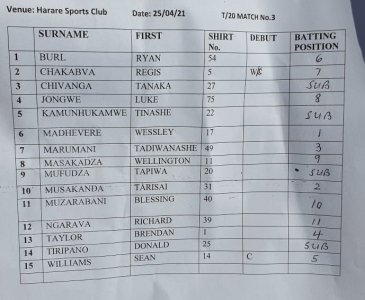 Venue: Harare Sports Club Date: 25/04/21 T/20 MATCH No.3
SURNAME FIRST SHIRT No. DEBUT BATTING POSITION
1 BURL RYAN 54 6
2 CHAKABVA REGIS 5 W/K 7
3 CHIVANGA TANAKA 27 SUB
4 JONGWE LUKE 75 8
5 KAMUNHUKAMWE TINASHE 22 SUB
6 MADHEVERE WESSLEY 17 1
7 MARUMANI TADIWANASHE 49 3
8 MASAKADZA WELLINGTON 11 9
9 MUFUDZA TAPIWA 20 SUB
10 MUSAKANDA TARISAI 31 2
11 MUZARABANI BLESSING 40 10
12 NGARAVA RICHARD 39 11
13 TAYLOR BRENDAN 1 4
14 TIRIPANO DONALD 25 SUB
15 WILLIAMS SEAN 14 C 5